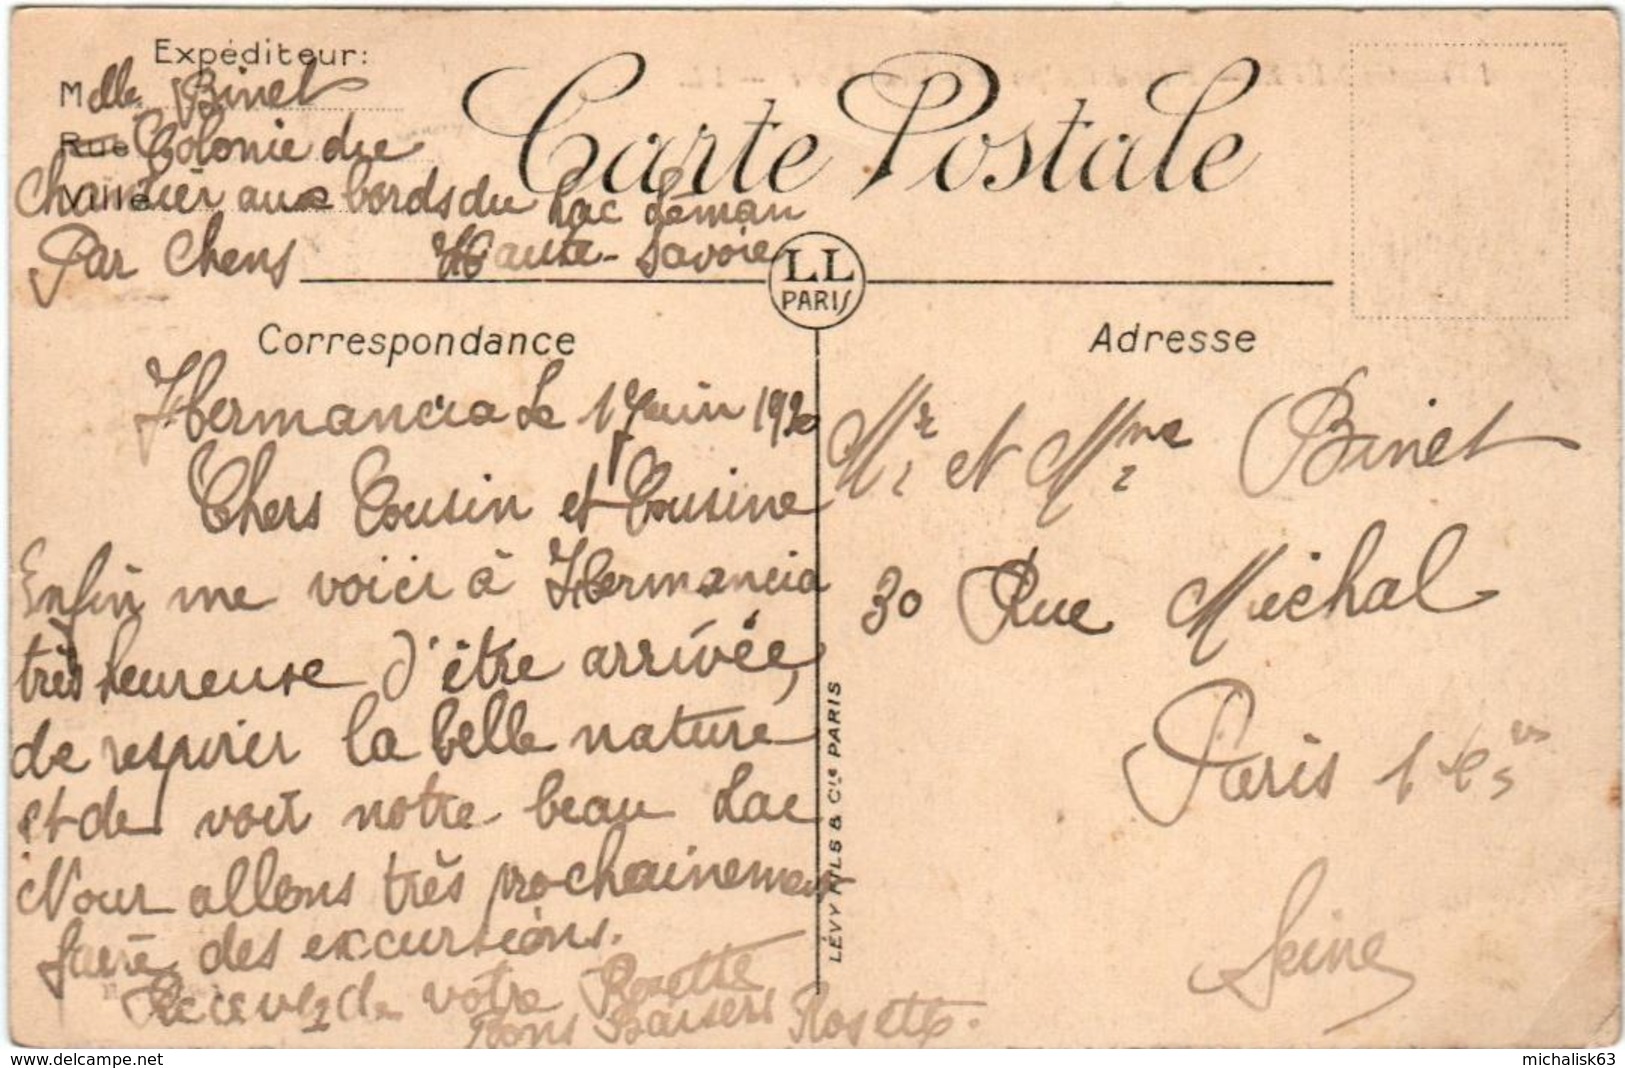 Expéditeur:
Mdlle Binet
Rue Colonie du
Ville
Chantier aux bords du Lac Léman
Par Chens Haute-Savoie
Carte Postale
LL
PARIS
Correspondance
Hermancia Le 1 Juin 1920
Chers Cousin et Cousine
Enfin me voici à Hermancia
très heureuse d'être arrivée,
de respirer la belle nature
et de voir notre beau Lac
Nour allons très prochainement
faire des excursions.
Recevez de votre Rosette
Bons Baisers Rosette.
LÉVY FILS & Cie PARIS
Adresse
Mr et Mme Binet
30 Rue Michal
Paris
Seine
michalisk63